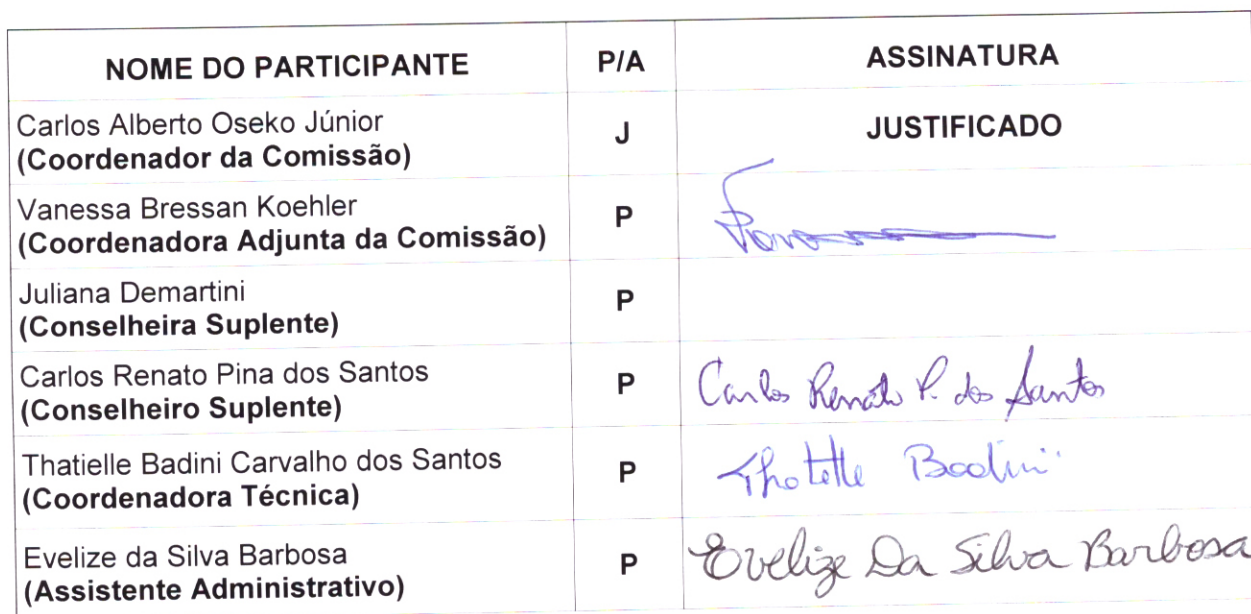 NOME DO PARTICIPANTE P/A ASSINATURA
Carlos Alberto Oseko Júnior
(Coordenador da Comissão) J JUSTIFICADO
Vanessa Bressan Koehler
(Coordenadora Adjunta da Comissão) P
Juliana Demartini
(Conselheira Suplente) P
Carlos Renato Pina dos Santos
(Conselheiro Suplente) P Carlos Renato P. dos Santos
Thatielle Badini Carvalho dos Santos
(Coordenadora Técnica) P Thatielle Badini
Evelize da Silva Barbosa
(Assistente Administrativo) P Evelize Da Silva Barbosa